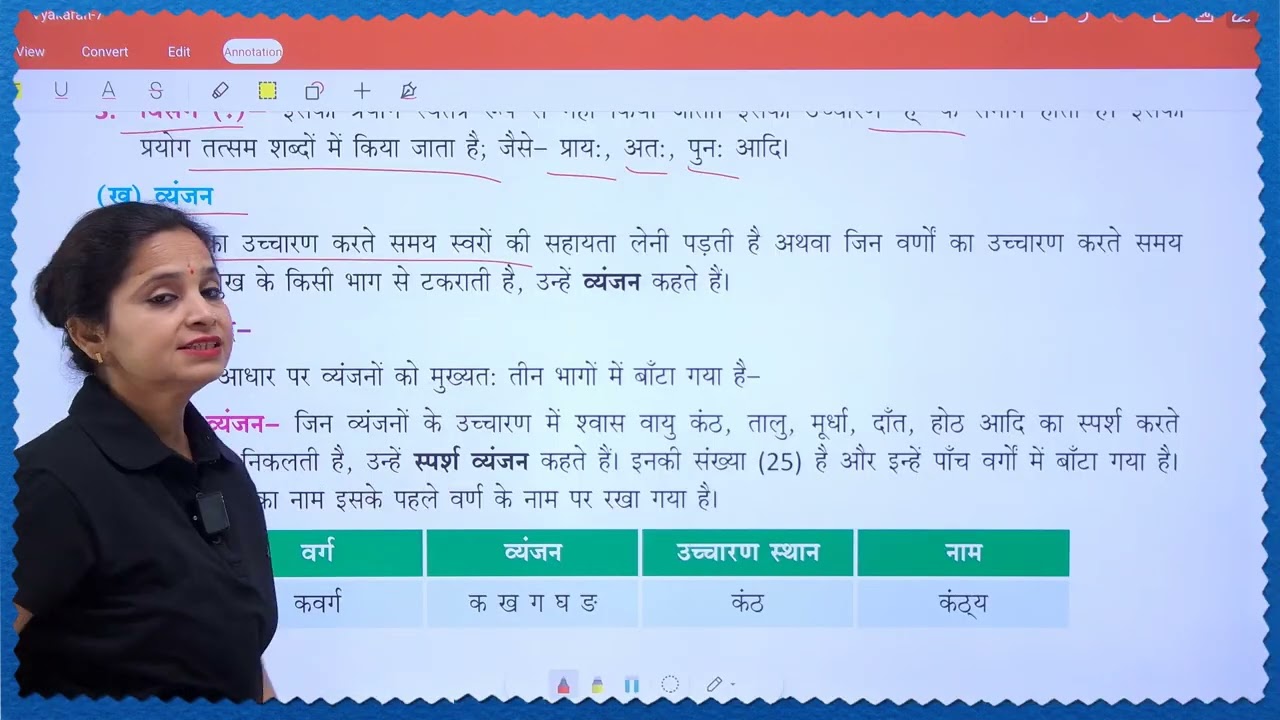 Vyakaran-7
View Convert Edit Annotation
U A S
3. विसर्ग (:)– इसका प्रयोग स्वतंत्र रूप से नहीं किया जाता। इसका उच्चारण 'ह्' के समान होता है। इसका
प्रयोग तत्सम शब्दों में किया जाता है; जैसे– प्राय:, अत:, पुन: आदि।
(ख) व्यंजन
का उच्चारण करते समय स्वरों की सहायता लेनी पड़ती है अथवा जिन वर्णों का उच्चारण करते समय
के किसी भाग से टकराती है, उन्हें व्यंजन कहते हैं।
आधार पर व्यंजनों को मुख्यत: तीन भागों में बाँटा गया है–
व्यंजन– जिन व्यंजनों के उच्चारण में श्वास वायु कंठ, तालु, मूर्धा, दाँत, होठ आदि का स्पर्श करते
निकलती है, उन्हें स्पर्श व्यंजन कहते हैं। इनकी संख्या (25) है और इन्हें पाँच वर्गों में बाँटा गया है।
का नाम इसके पहले वर्ण के नाम पर रखा गया है।
वर्ग व्यंजन उच्चारण स्थान नाम
कवर्ग क ख ग घ ङ कंठ कंठ्य